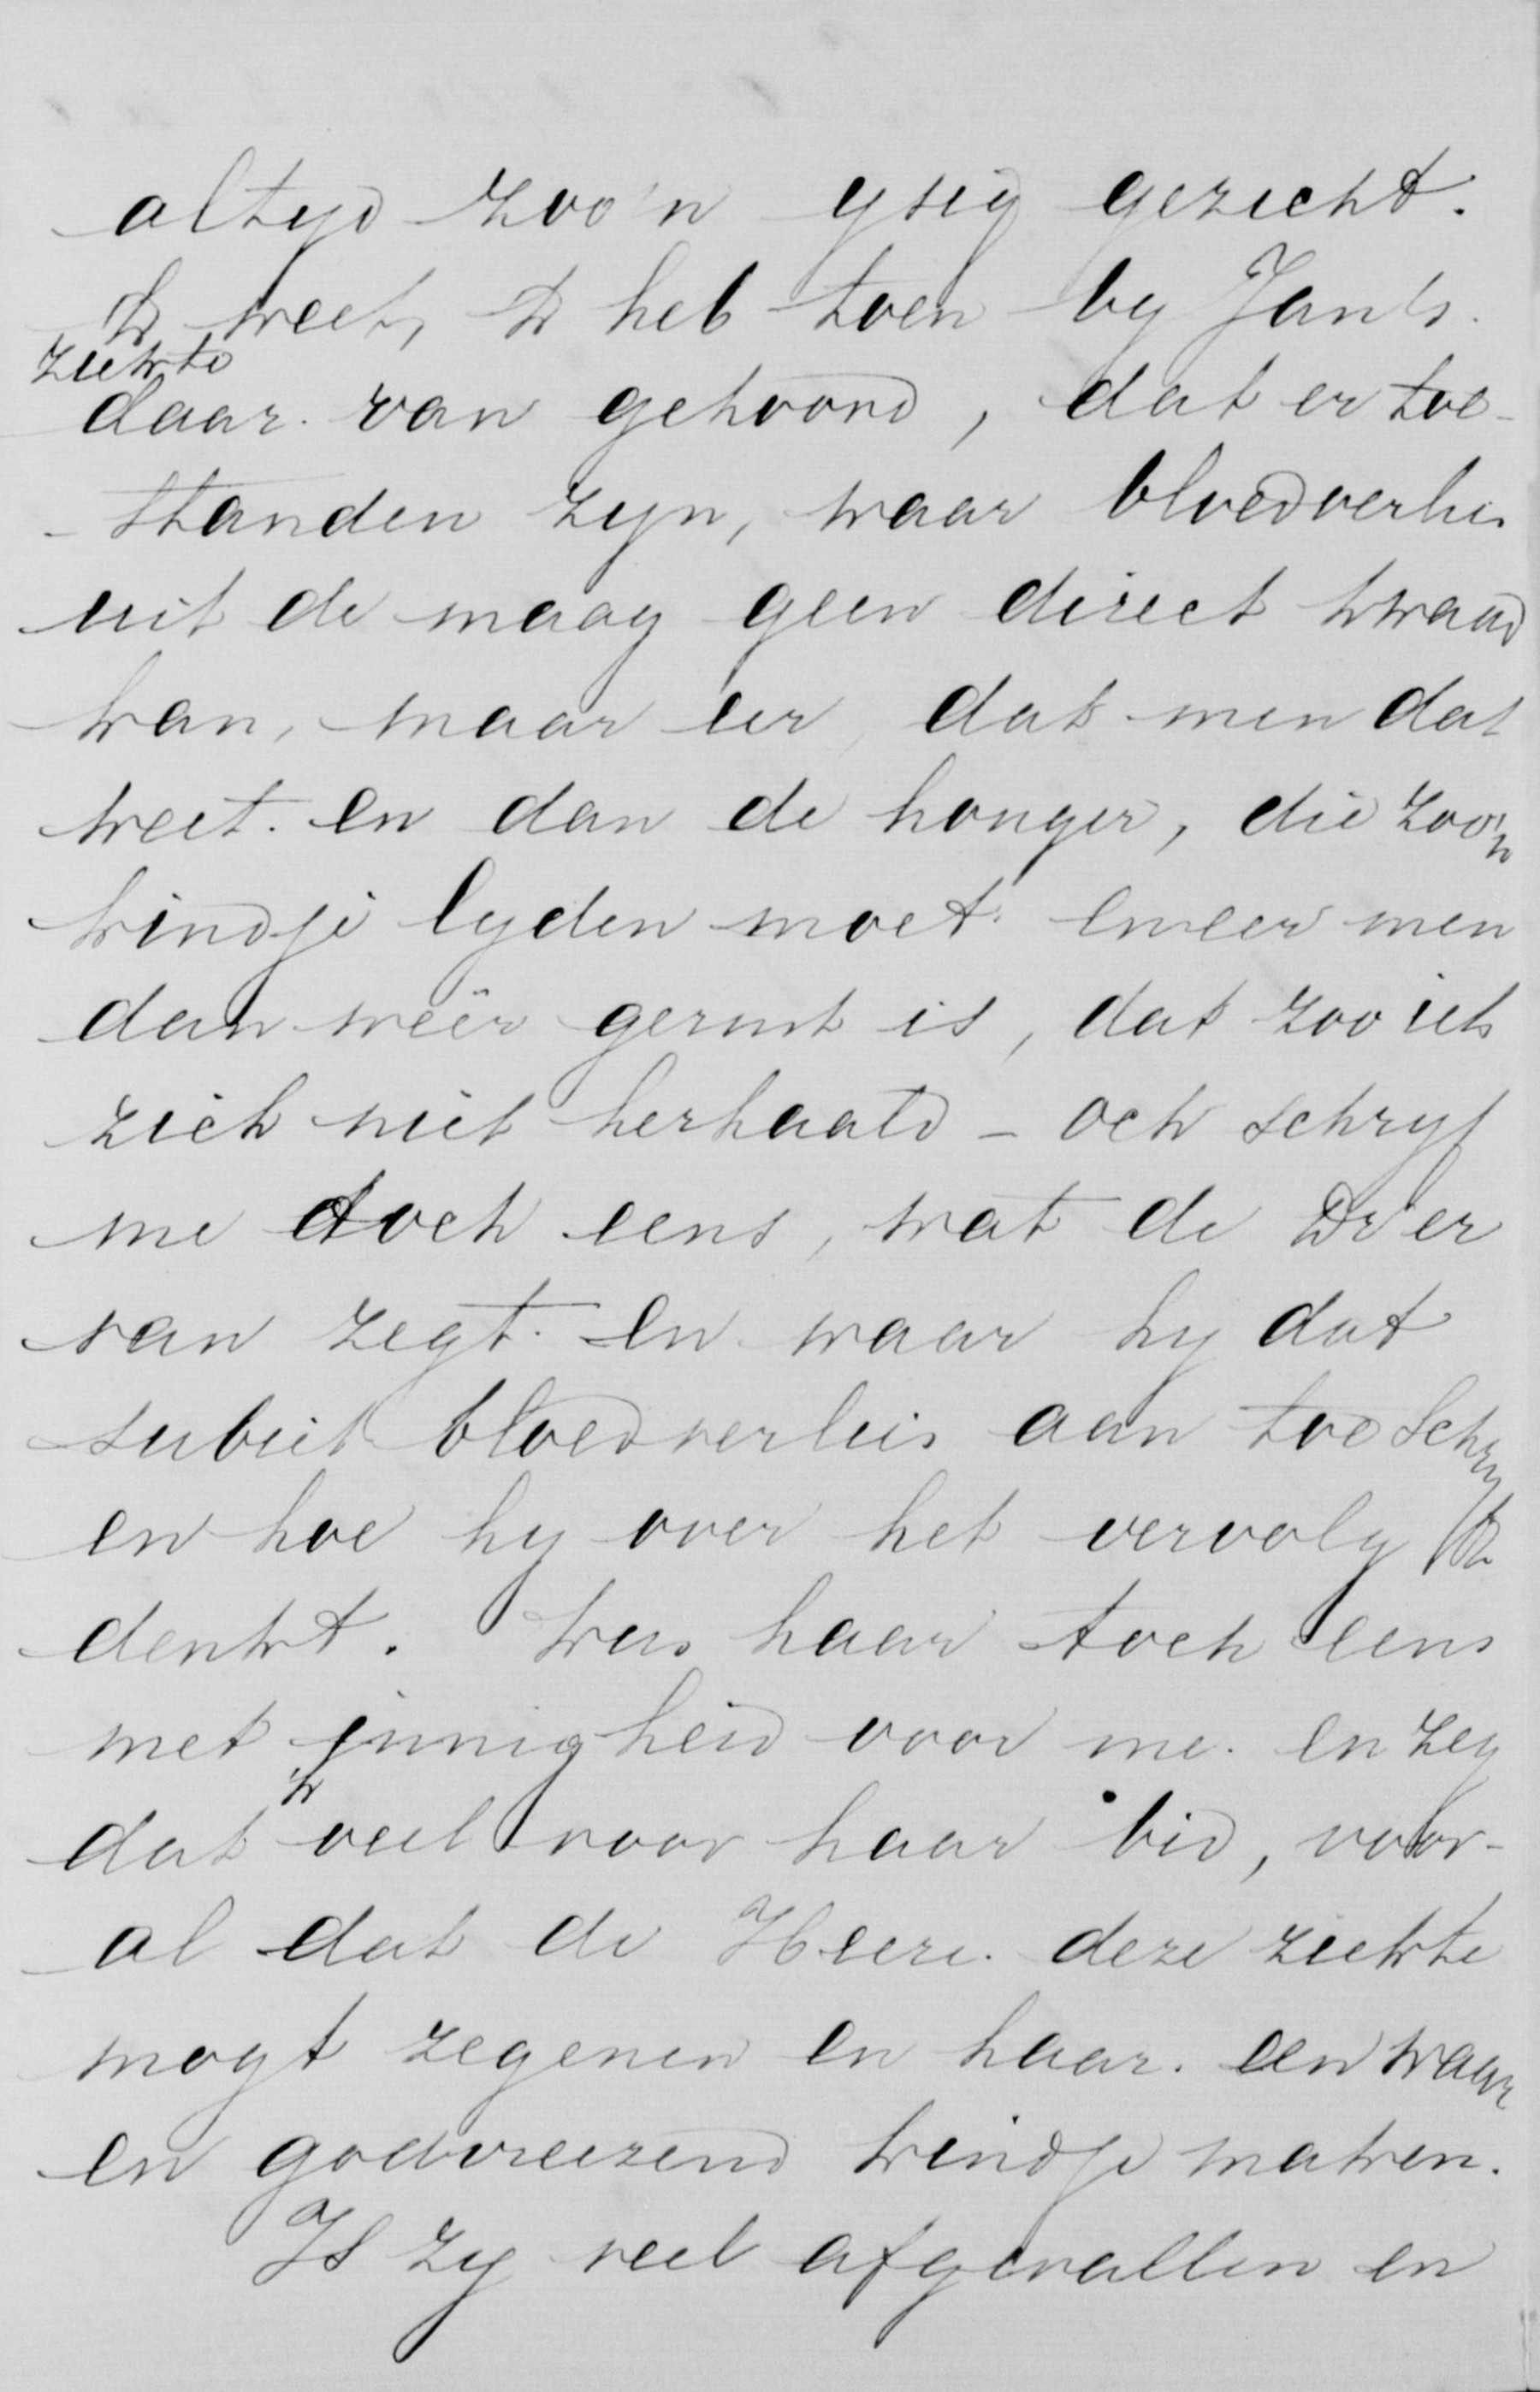 altyd zoo'n ysig gezicht.
Ik weet, ik heb toen by Jan's
ziekte
daar van gehoord, dat er toe-
standen zyn, waar bloedverlies
uit de maag geen direct kwaad
kan, maar eer dat men dat
weet. en dan de honger, die zoo'n
kindje lyden moet. eneer men
dan weêr gerust is, dat zoo iets
zich niet herhaald - och schryf
me doch eens, wat de Dr er
van zegt. en waar hy dat
subiet bloedverlies aan toeschryft
en hoe hy over het vervolg
denkt. kus haar toch eens
met innigheid voor me. en zeg
dat ik veel voor haar bid, voor-
al dat de Heere. deze ziekte
mogt zegenen en haar. een waar
en godvreezend kindje maken.
Is zy veel afgevallen en